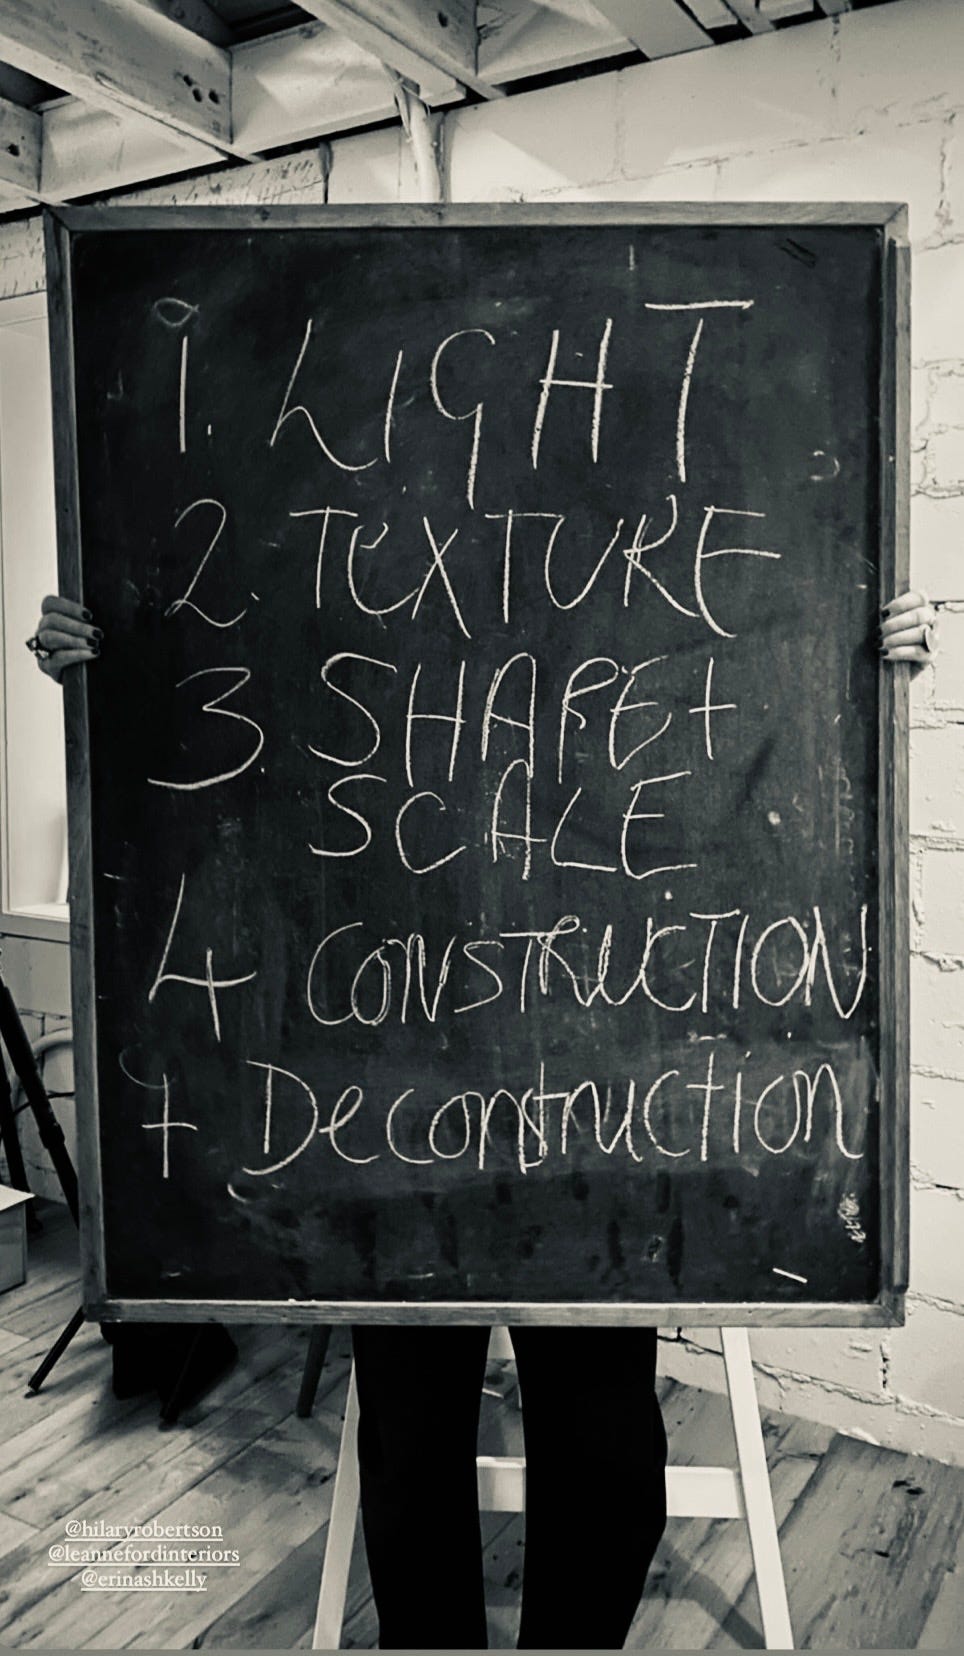 1. LIGHT
2. TEXTURE
3. SHAPE +
SCALE
4 CONSTRUCTION
+ Deconstruction
@hilaryrobertson
@leannefordinteriors
@erinashkelly